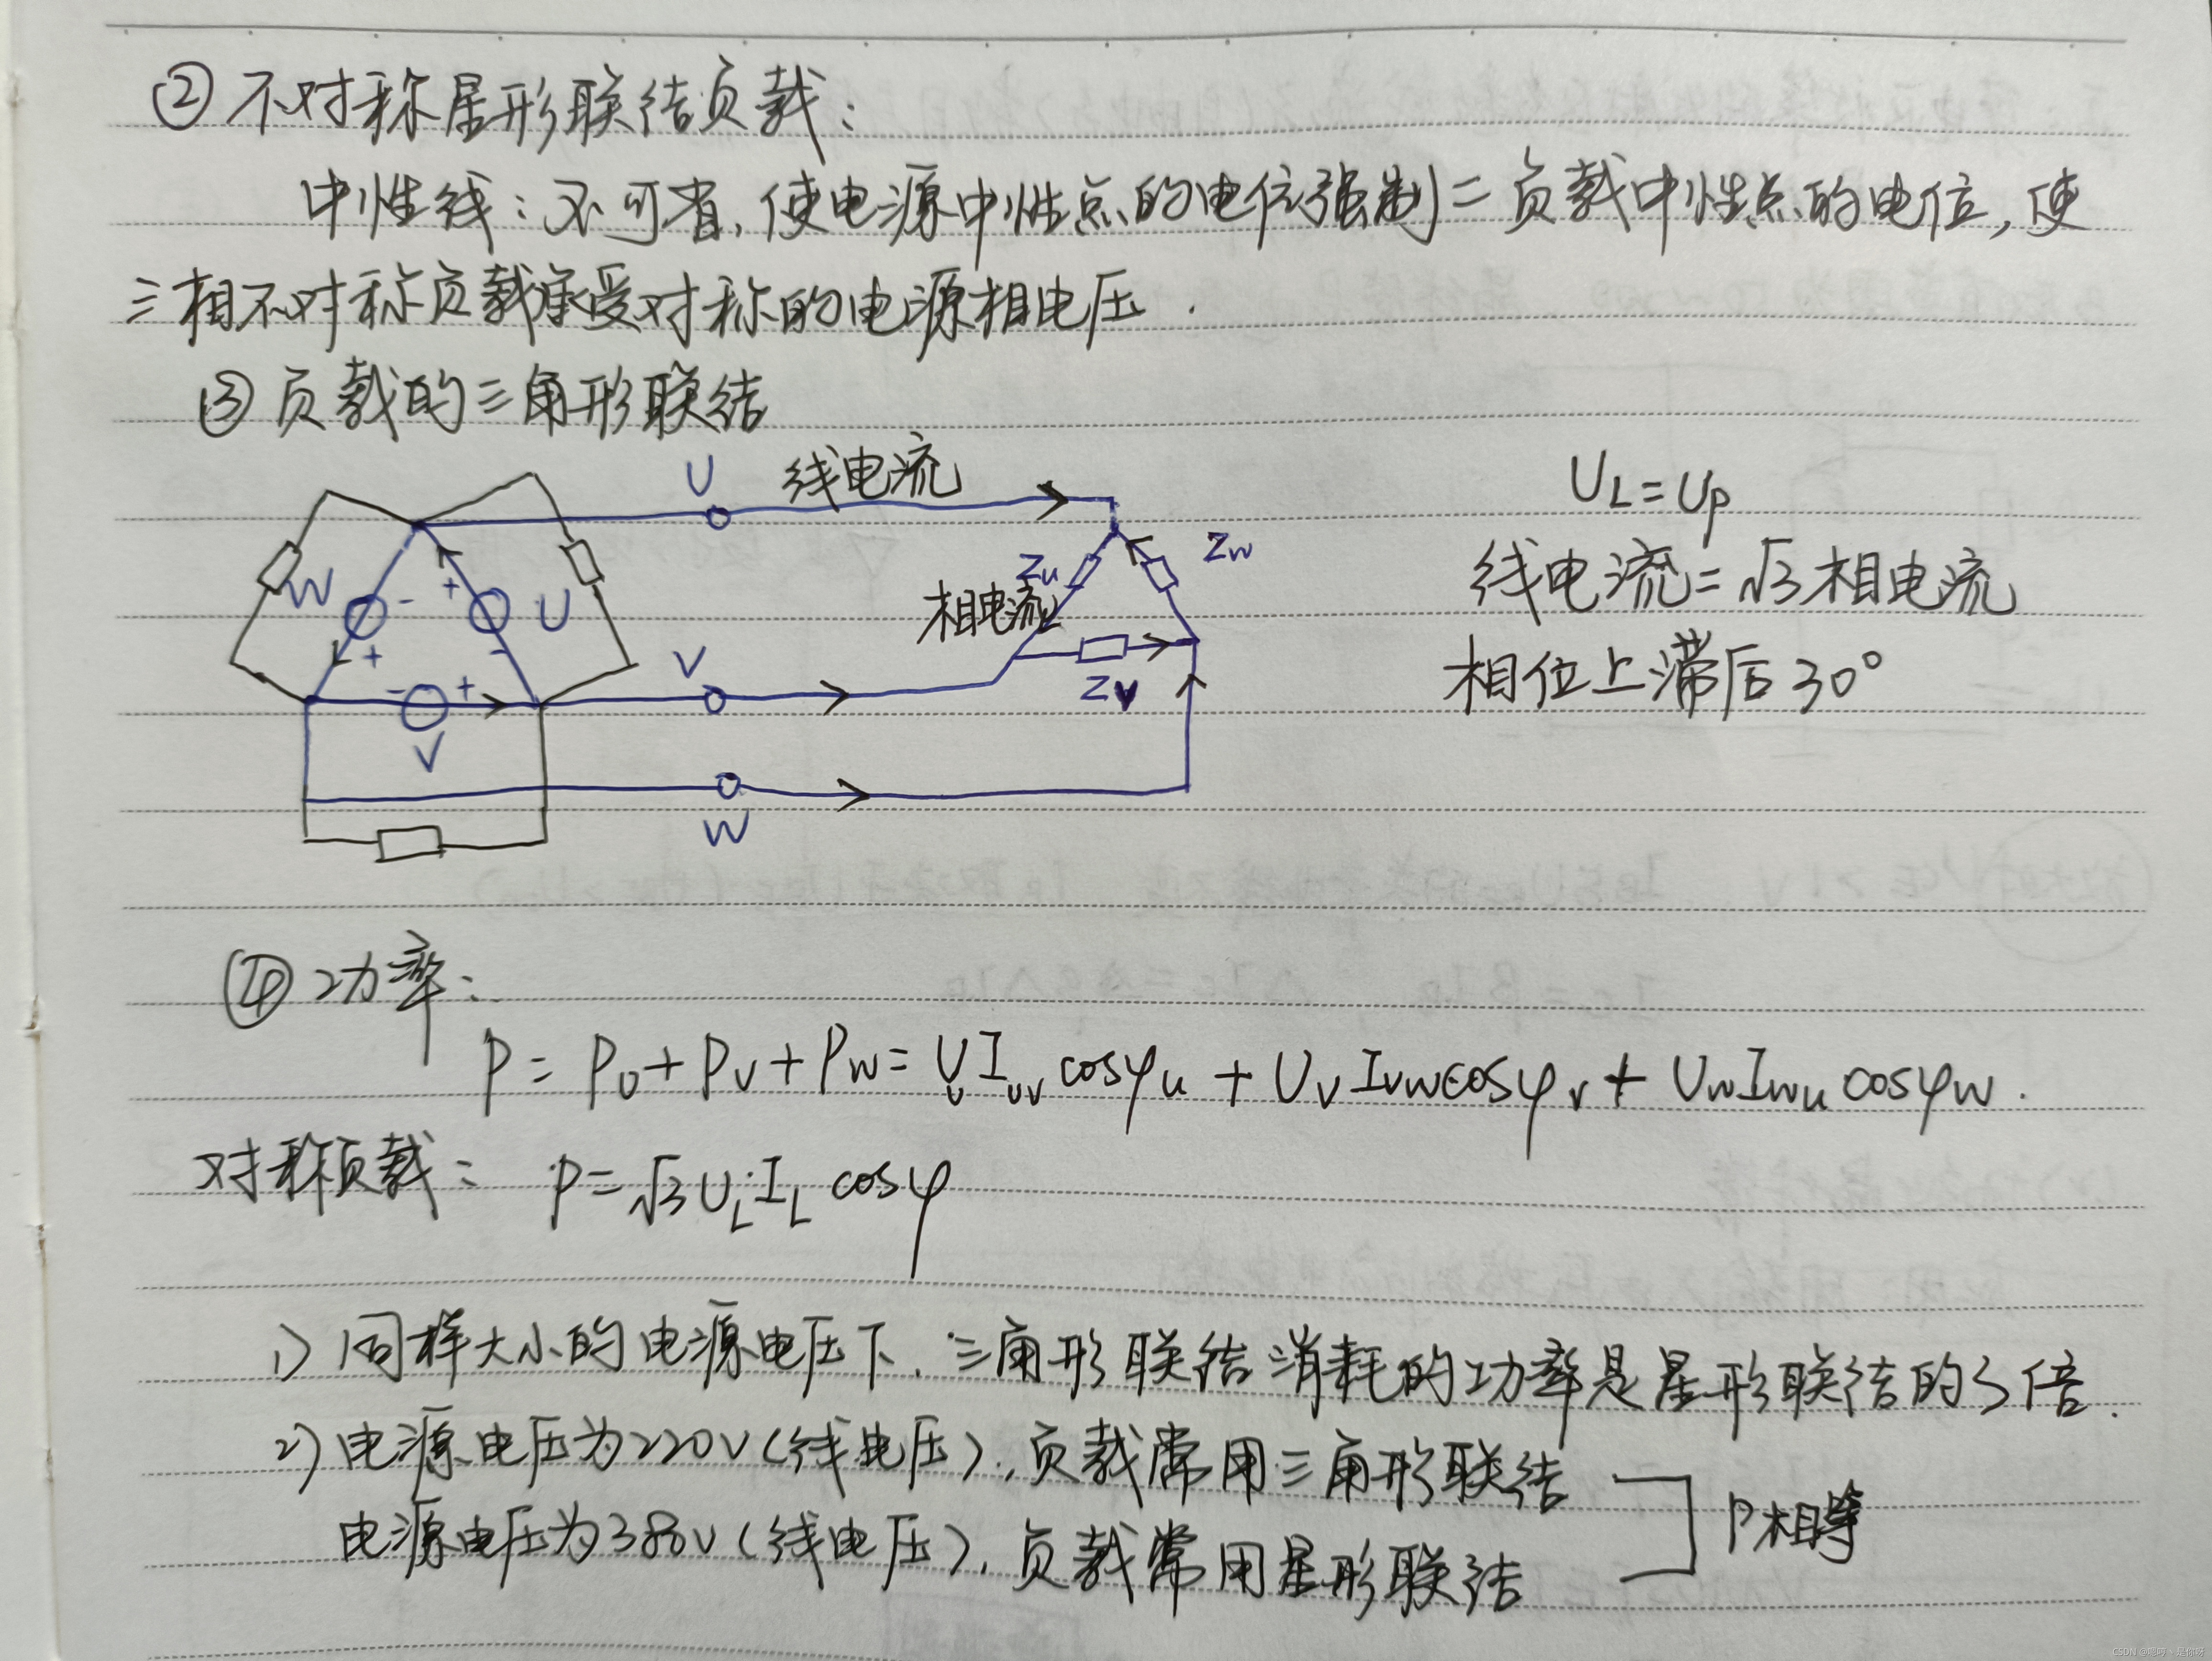 ② 不对称星形联结负载：
中性线：不可省，使电源中性点的电位强制=负载中性点的电位，使
三相不对称负载承受对称的电源相电压．
③ 负载的三角形联结
U 线电流
W - + U
+ -
- +
V
V
W
Zu Zw
相电流
Zv
UL=Up
线电流=√3相电流
相位上滞后30°
④ 功率：
P = PU + PV + PW = UU IUV cosφu + UV IVW cosφv + UW IWU cosφw．
对称负载： P=√3 UL·IL cosφ
1) 同样大小的电源电压下，三角形联结消耗的功率是星形联结的3倍．
2) 电源电压为220V（线电压），负载常用三角形联结
电源电压为380V（线电压），负载常用星形联结
P相等